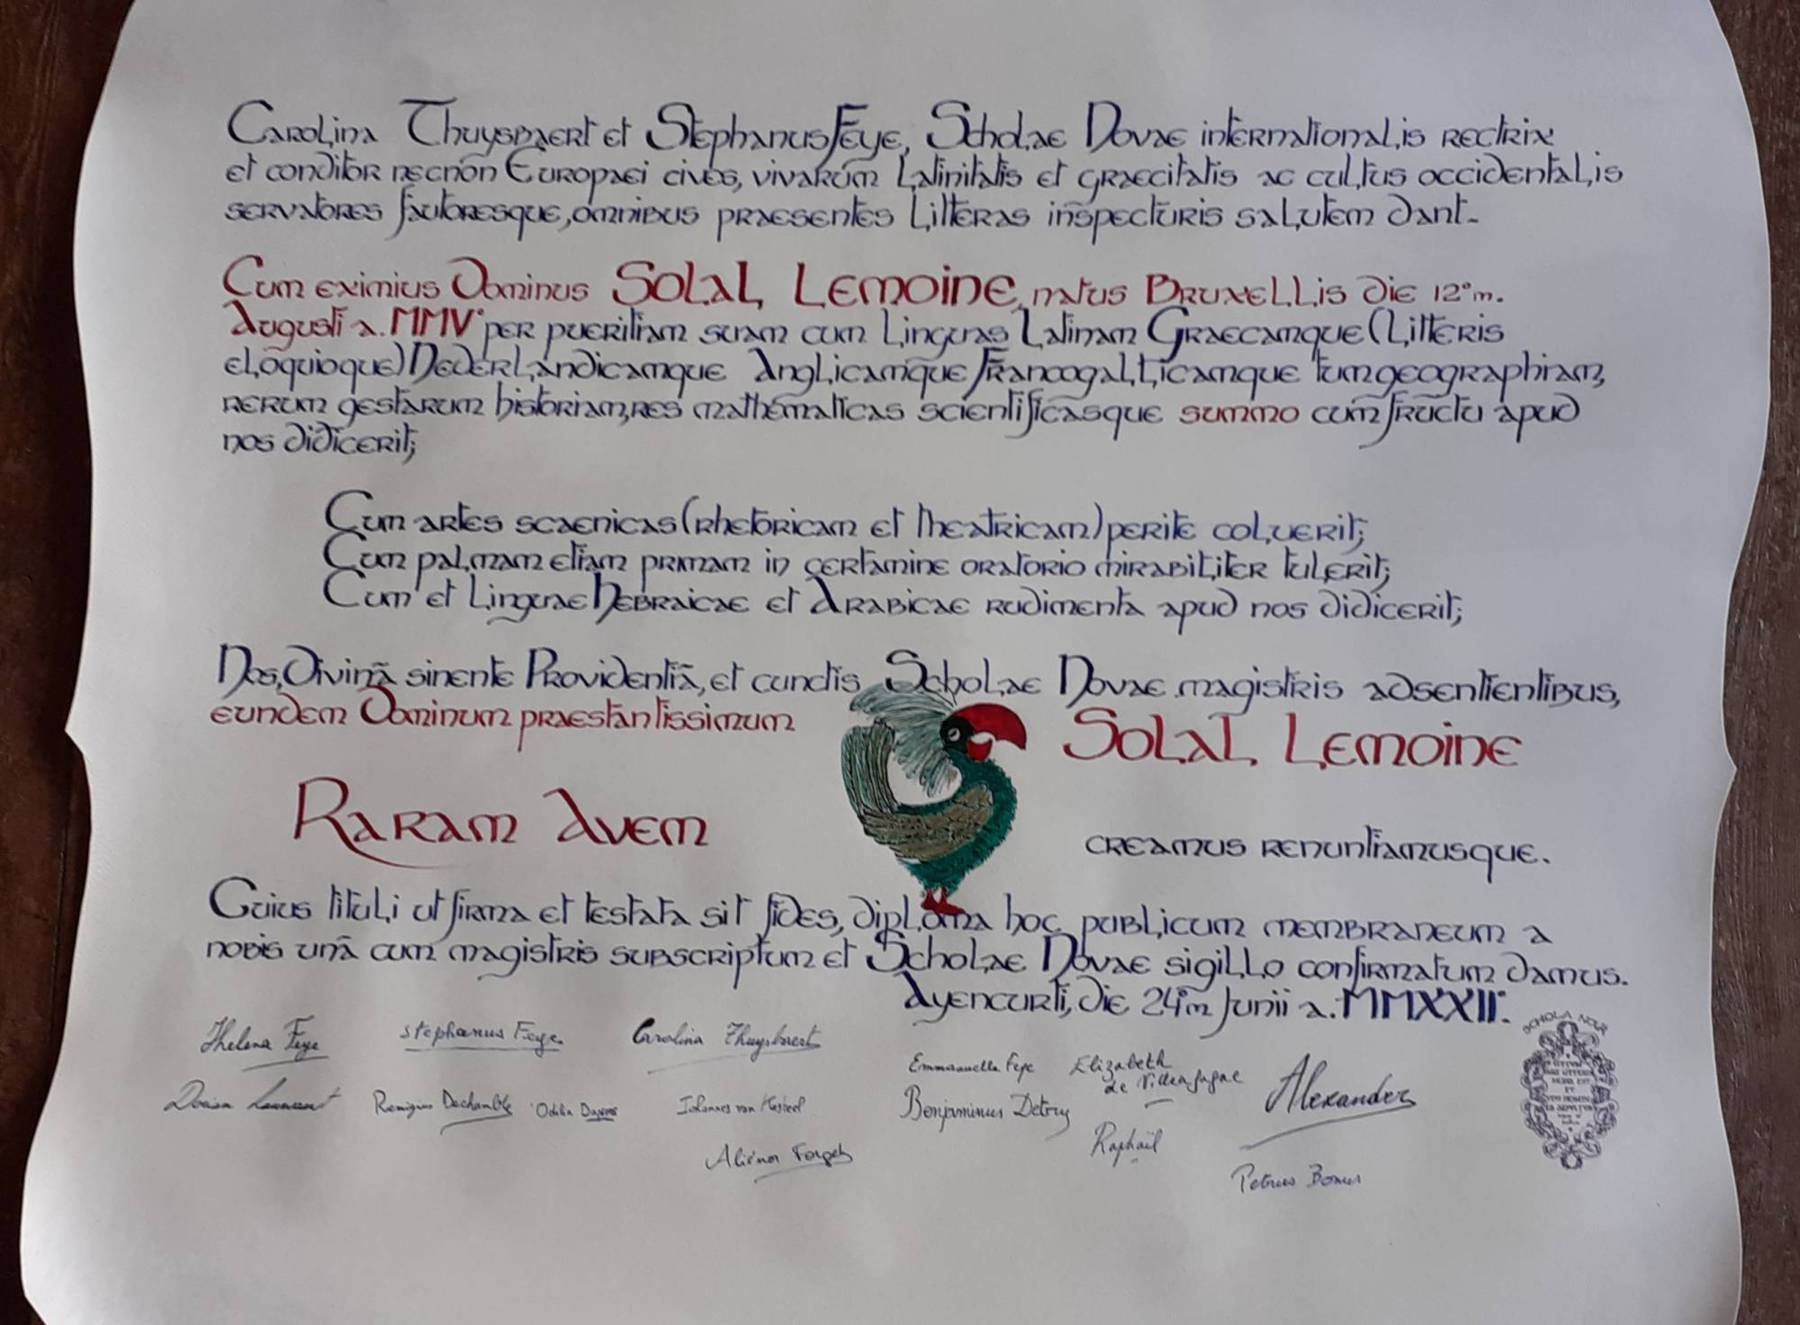 Carolina Thuysbaert et Stephanus Feye, Scholae Novae internationalis rectrix
et conditor necnōn Europaei cives, vivarūm Latinitatis et graecitatis ac cultus occidentalis
servatores fautoresque, omnibus praesentes litteras inspecturis salutem dant.
Cum eximius Dominus Solal Lemoine, natus Bruxellis die 12°m.
Augusti a. MMV° per pueritiam suam cum linguas Latinam Graecamque (litteris
eloquioque) Nederlandicamque Anglicamque Francogallicamque tum geographiam,
rerum gestarum historiam, res mathematicas scientificasque summo cum fructu apud
nos didicerit;
Cum artes scaenicas (rhetoricam et theatricam) perite coluerit;
Cum palmam etiam primam in certamine oratorio mirabiliter tulerit;
Cum et linguae Hebraicae et Arabicae rudimenta apud nos didicerit;
Nos, Divinā sinente Providentiā, et cunctis Scholae Novae magistris adsentientibus,
eundem Dominum praestantissimum Solal Lemoine
Raram Avem creamus renuntiamusque.
Cuius tituli ut firma et testata sit fides, diploma hoc publicum membraneum a
nobis unā cum magistris subscriptum et Scholae Novae sigillo confirmatum damus.
Ayencurti, die 24°m Junii a. MMXXII°.
SCHOLA NOVA
Helena Feye Stephanus Feye Carolina Thuysbaert
Emmanuella Feye Elizabeth
de Villenfagne Alexander
Remigius Dechamble Johannes van Kasteel Benjaminus Detry
Aliénor Forget Raphaïl
Petrus Bonus